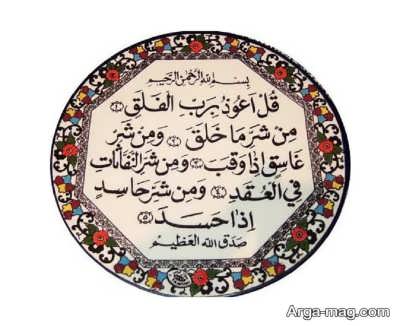 بسم الله الرحمن الرحيم
قل أعوذ برب الفلق ﴿١﴾
من شر ما خلق ﴿٢﴾ ومن شر
غاسق إذا وقب ﴿٣﴾ ومن شر النفاثات
في العقد ﴿٤﴾ ومن شر حاسد
إذا حسد ﴿٥﴾
صدق الله العظيم
Arga-mag.com